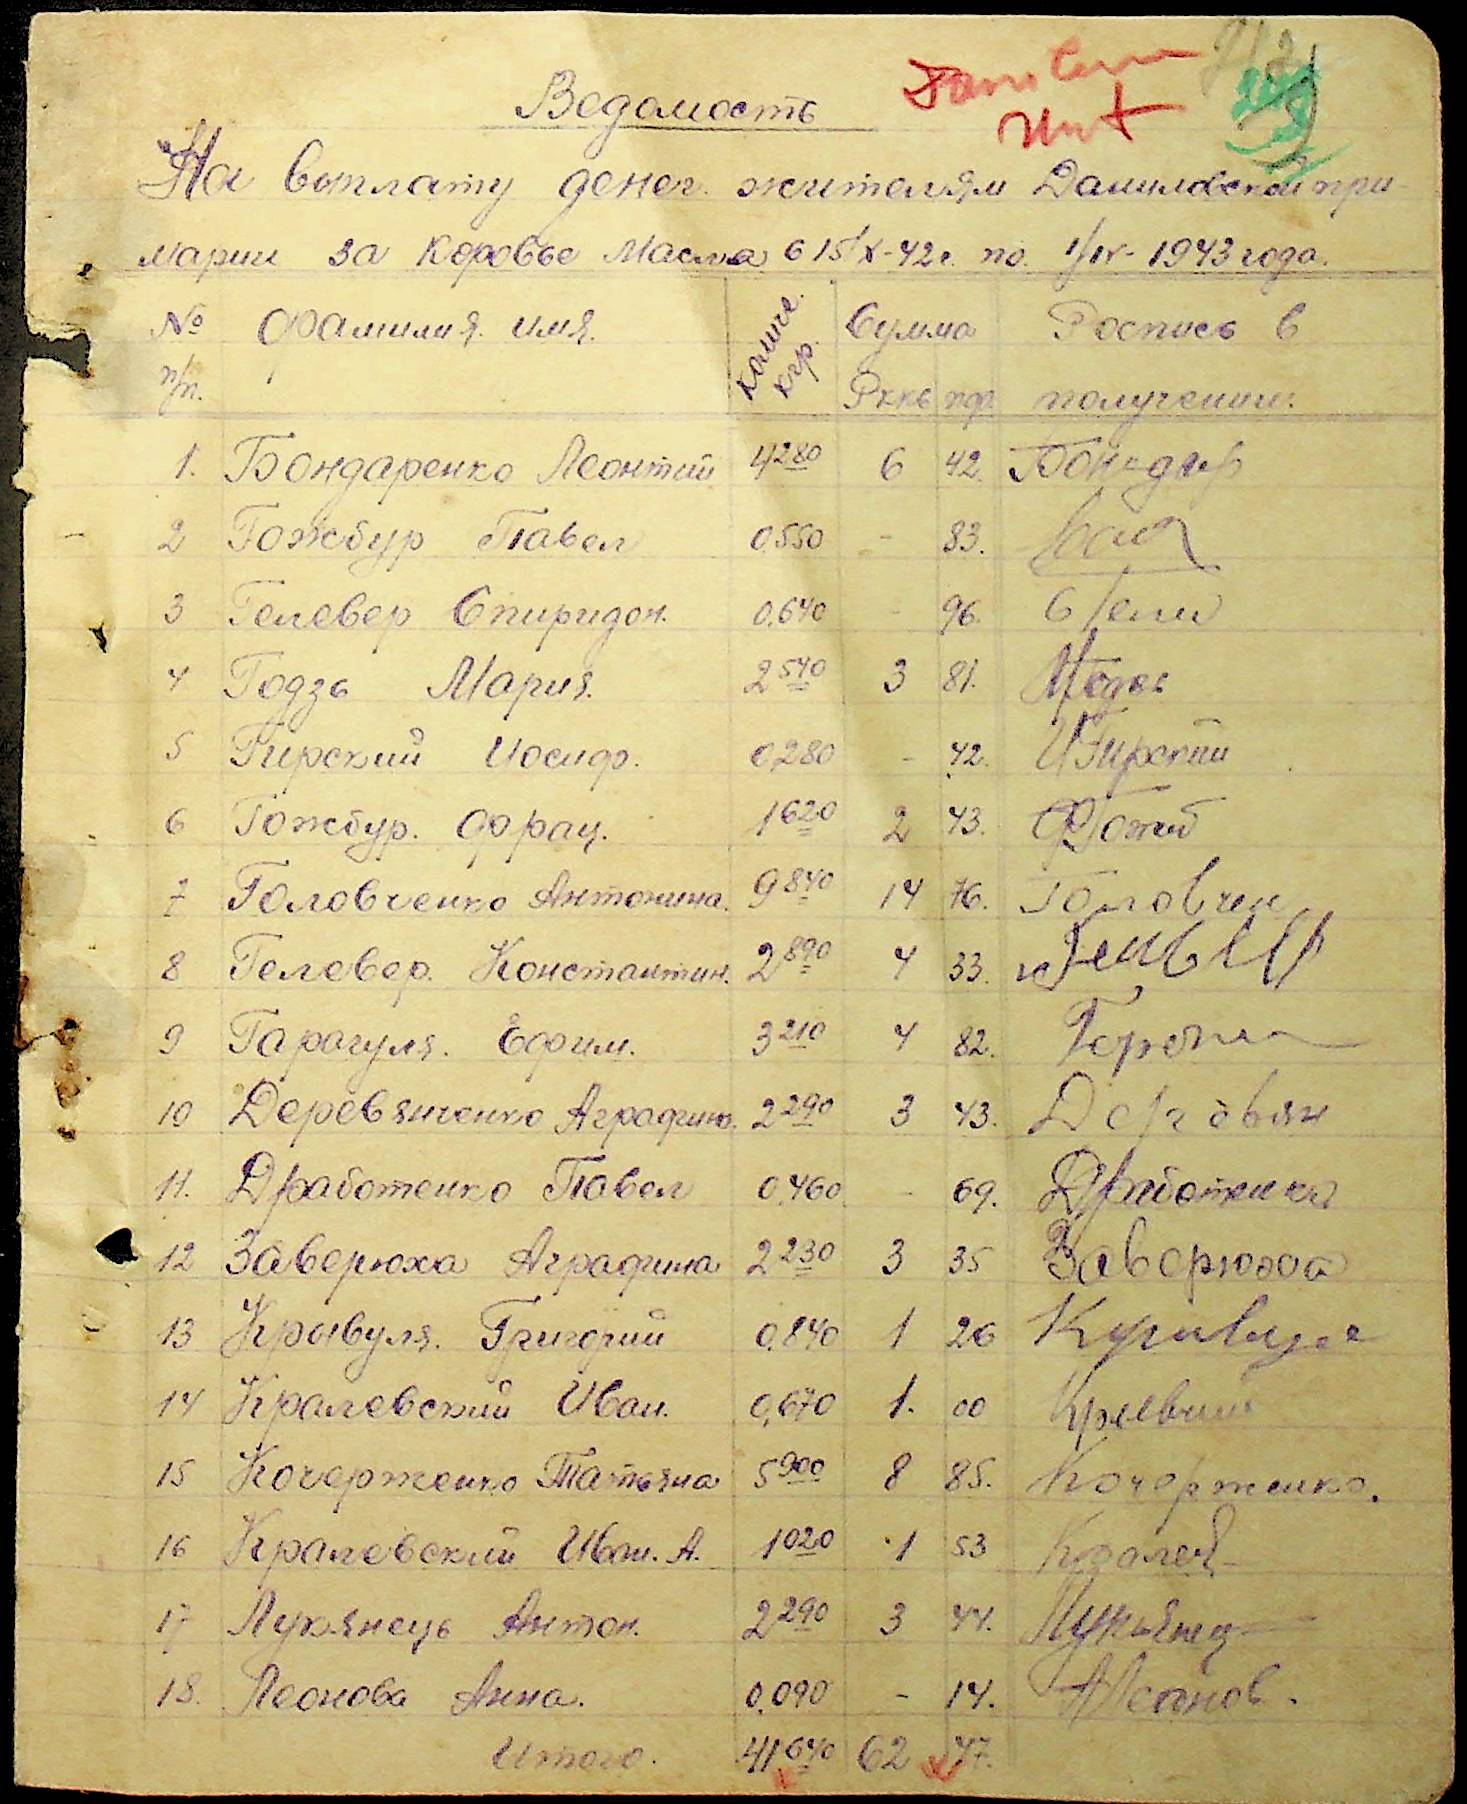 Ведомость
На выплату денег жителям Даниловской при-
марии за коровье масла с 15/X-42 г. по 1/IV-1943 года.
№ Фамилия имя. Сумма Роспись в
п/п. кгр. Рккс пф. получении.
1. Бондаренко Леонтий 4280 6 42. Бондар
2 Гожбур Павел 0.550 - 83.
3 Гелевер Спиридон. 0.640 - 96.
4 Годзь Мария. 2540 3 81. МГодзь
5 Гирский Иосиф. 0,280 - 42. ИГирский
6 Гожбур. Офрац. 1620 2 43.
7 Головченко Антонина. 9840 14 76. Головчен
8 Гелевер. Константин. 2890 4 33.
9 Гарагуля. Ефим. 3210 4 82.
10 Деревянченко Аграфина. 2290 3 43. Деревян
11. Дработенко Павел 0,460 - 69. Дработенко
12 Заверюха Аграфина 2230 3 35 Заверюха
13 Крывуля. Григорий 0.840 1 26
14 Кралевский Иван. 0,670 1. 00
15 Кочерженко Татьяна 5900 8 85. Кочерженко.
16 Кралевский Иван. А. 1020 1 53 Кралев
17 Лукянець Антон. 2290 3 44. Лукьянец
18. Леонова Анна. 0.090 - 14. АЛеонов.
Итого. 41640 62 47.